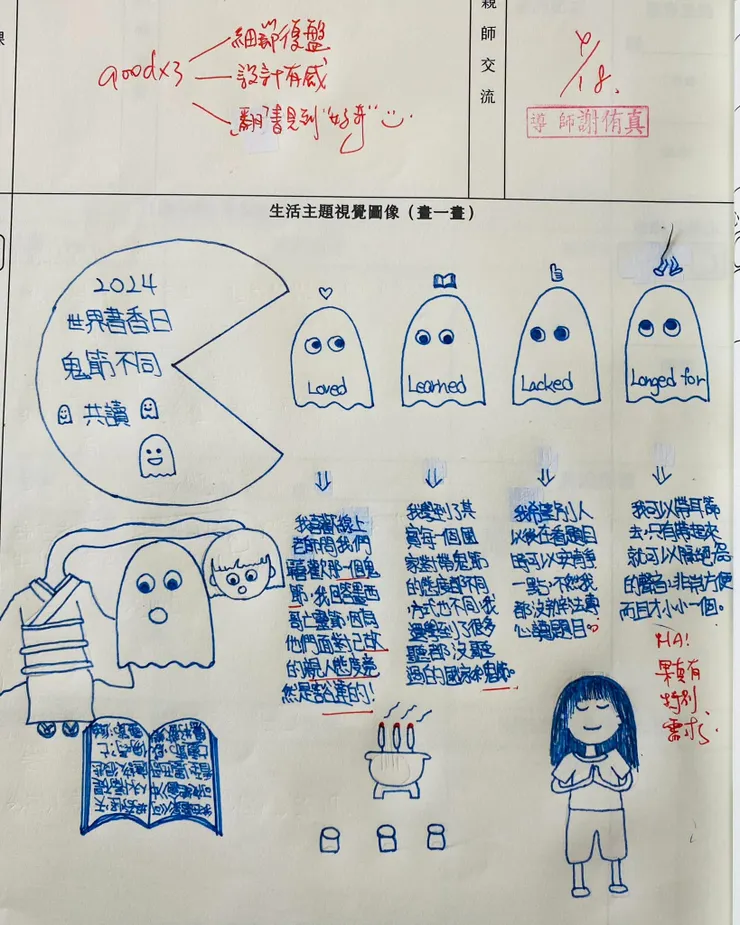 課
親師交流
goodx3
細節復盤
設計有感
翻書見到"好奇"
4/18.
導師謝侑真
生活主題視覺圖像(畫一畫)
2024
世界書香日
鬼節不同
共讀
Loved
Learned
Lacked
Longed for
我喜歡線上
老師問我們
喜歡哪一個鬼
節,我回答墨西
哥亡靈節,因為
他們面對已故
的親人態度竟
然是豁達的!
我學到了其
實每一個國
家對待鬼節
的態度都不同
方式也不同,我
還學到了很多
聽都沒聽
過的國家和鬼節。
我希望別人
以後在看題目
時可以安靜
一點,不然我
都沒辦法專
心讀題目。
我可以帶耳塞
去,只有帶起來
就可以隔絕
的聲音,非常方便
而且才小小一個。
HA!
果真有
特別
需求。